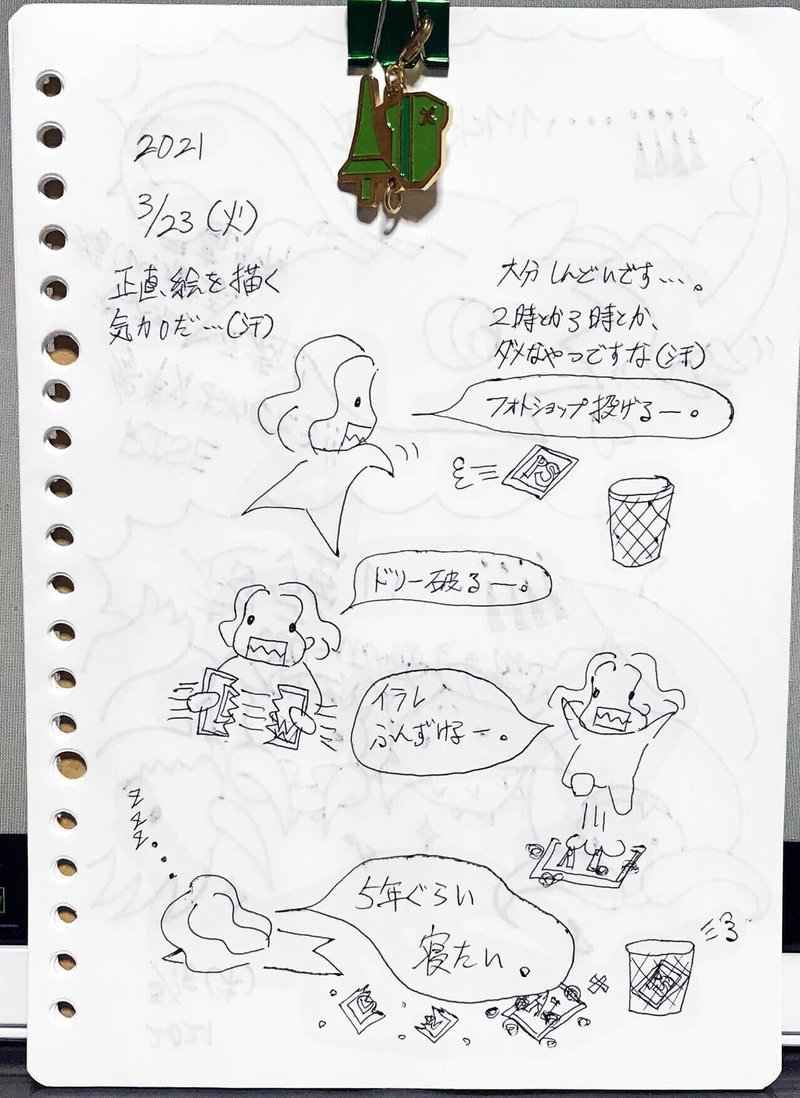 2021
3/23(火)
正直、絵を描く
気力0だ…(汗)
大分しんどいです…。
2時とか3時とか、
ダメなやつですな(汗)
フォトショップ投げるー。
PS
ドリー破るー。
イラレ
ぶんずけるー。
ZZZ...
5年ぐらい
寝たい。
PS